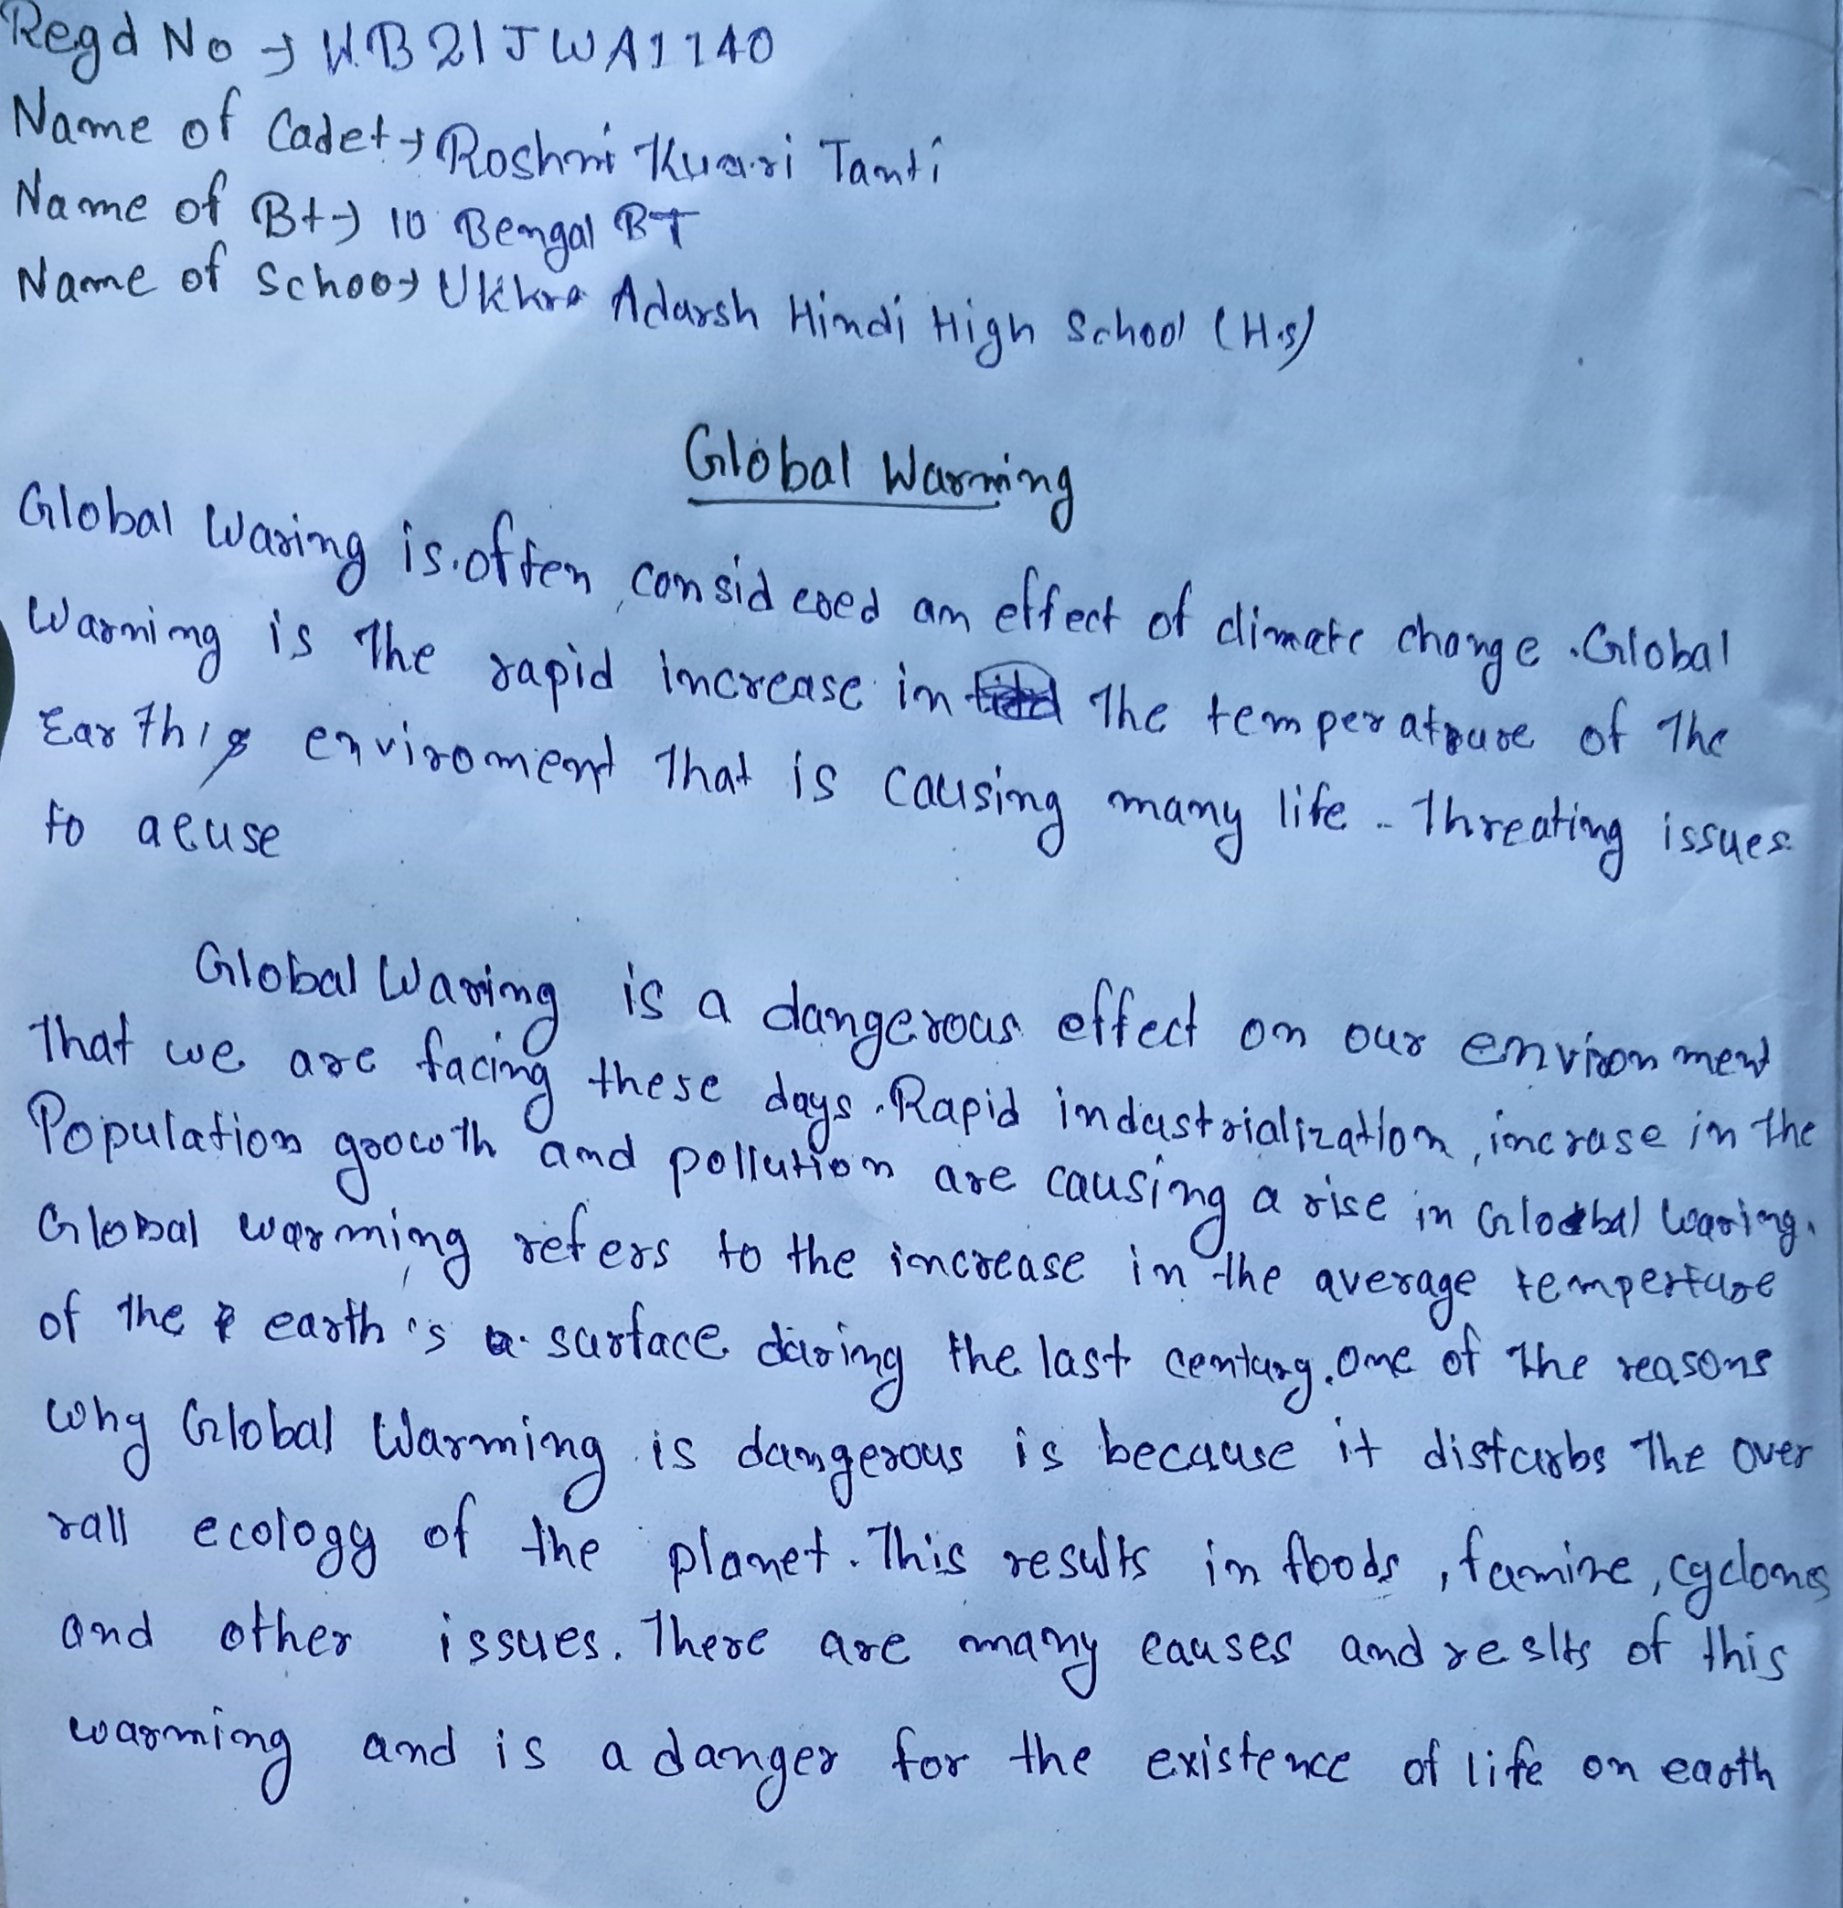 Regd No → WB21JWA1140
Name of Cadet → Roshni Kuari Tanti
Name of Bt → 10 Bengal BT
Name of Schoo → Ukhra Adarsh Hindi High School (H.s)
Global Warming
Global Waring is often considered an effect of climate change. Global
Warning is the rapid increase in the temperature of the
Earth's enviroment that is causing many life - threating issues
to
Global Waring is a dangerous effect on our environment
that we are facing these days. Rapid industrialization, incrase in the
Population growth and pollution are causing a rise in Global Waring.
Global warming refers to the increase in the average temperture
of the earth's surface during the last century. One of the reasons
why Global Warming is dangerous is because it disturbs the over
rall ecology of the planet. This results in floods, famine, cyclones
and other issues. There are many causes and reslts of this
warming and is a danger for the existence of life on earth